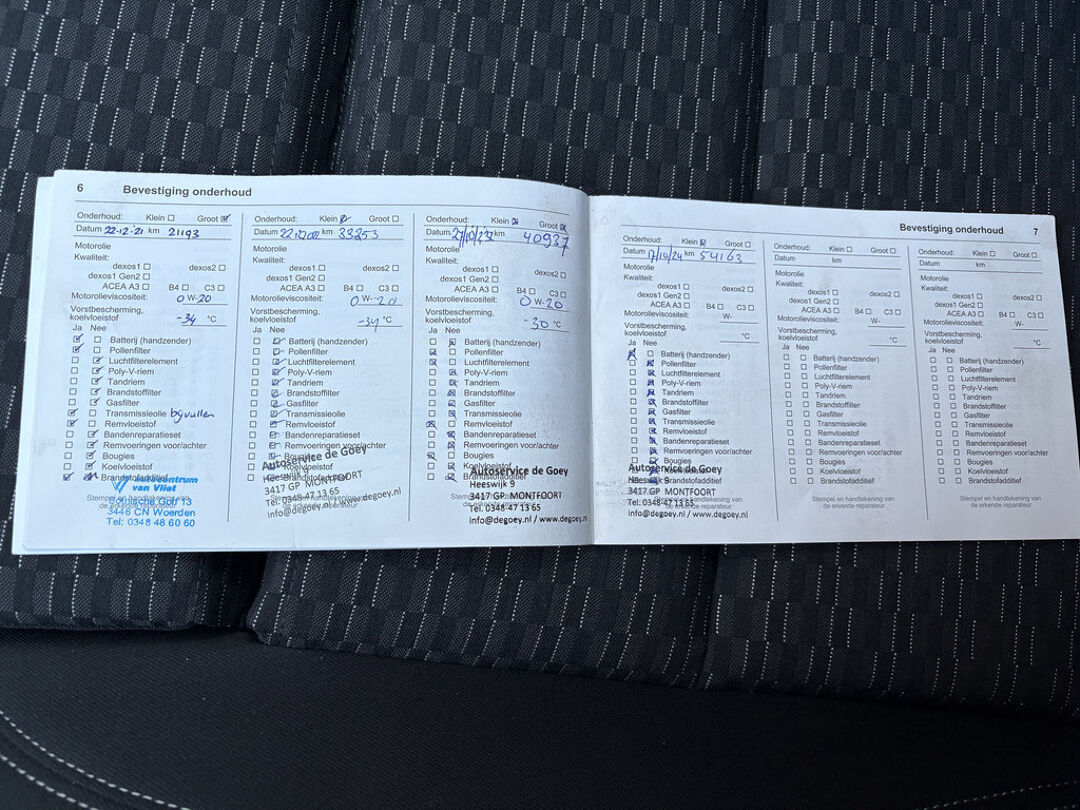 6 Bevestiging onderhoud
Onderhoud: Klein Groot
Datum 22-12-21 km 21193
Motorolie
Kwaliteit:
dexos1 dexos2
dexos1 Gen2
ACEA A3 B4 C3
Motorolieviscositeit:
0 W-20
Vorstbescherming,
koelvloeistof -34 °C
Ja Nee
Batterij (handzender)
Pollenfilter
Luchtfilterelement
Poly-V-riem
Tandriem
Brandstoffilter
Gasfilter
Transmissieolie bijvullen
Remvloeistof
Bandenreparatieset
Remvoeringen voor/achter
Bougies
Koelvloeistof
Brandstofadditief
van Vliet
Stempel en handtekening van
de erkende reparateur
3446 CN Woerden
Tel: 0348 48 60 60
Onderhoud: Klein Groot
Datum km 33253
Motorolie
Kwaliteit:
dexos1 dexos2
dexos1 Gen2
ACEA A3 B4 C3
Motorolieviscositeit:
0 W-20
Vorstbescherming,
koelvloeistof -34 °C
Ja Nee
Batterij (handzender)
Pollenfilter
Luchtfilterelement
Poly-V-riem
Tandriem
Brandstoffilter
Gasfilter
Transmissieolie
Remvloeistof
Bandenreparatieset
Remvoeringen voor/achter
Bougies
Koelvloeistof
Brandstofadditief
Autoservice de Goey
Heeswijk 9
3417 GP MONTFOORT
Tel. 0348-47 13 65
Stempel en handtekening van
de erkende reparateur
info@degoey.nl / www.degoey.nl
Onderhoud: Klein Groot
Datum km 40937
Motorolie
Kwaliteit:
dexos1 dexos2
dexos1 Gen2
ACEA A3 B4 C3
Motorolieviscositeit:
0 W-20
Vorstbescherming,
koelvloeistof -30 °C
Ja Nee
Batterij (handzender)
Pollenfilter
Luchtfilterelement
Poly-V-riem
Tandriem
Brandstoffilter
Gasfilter
Transmissieolie
Remvloeistof
Bandenreparatieset
Remvoeringen voor/achter
Bougies
Koelvloeistof
Brandstofadditief
Autoservice de Goey
Heeswijk 9
3417 GP MONTFOORT
Stempel en handtekening van
de erkende reparateur
Tel. 0348-47 13 65
info@degoey.nl / www.degoey.nl
Bevestiging onderhoud 7
Onderhoud: Klein Groot
Datum 17/10/24 km 54163
Motorolie
Kwaliteit:
dexos1 dexos2
dexos1 Gen2
ACEA A3 B4 C3
Motorolieviscositeit:
W-
Vorstbescherming,
koelvloeistof °C
Ja Nee
Batterij (handzender)
Pollenfilter
Luchtfilterelement
Poly-V-riem
Tandriem
Brandstoffilter
Gasfilter
Transmissieolie
Remvloeistof
Bandenreparatieset
Remvoeringen voor/achter
Bougies
Koelvloeistof
Brandstofadditief
Autoservice de Goey
Heeswijk 9
3417 GP MONTFOORT
Tel. 0348-47 13 65
Stempel en handtekening van
de erkende reparateur
info@degoey.nl / www.degoey.nl
Onderhoud: Klein Groot
Datum km
Motorolie
Kwaliteit:
dexos1 dexos2
dexos1 Gen2
ACEA A3 B4 C3
Motorolieviscositeit:
W-
Vorstbescherming,
koelvloeistof °C
Ja Nee
Batterij (handzender)
Pollenfilter
Luchtfilterelement
Poly-V-riem
Tandriem
Brandstoffilter
Gasfilter
Transmissieolie
Remvloeistof
Bandenreparatieset
Remvoeringen voor/achter
Bougies
Koelvloeistof
Brandstofadditief
Stempel en handtekening van
de erkende reparateur
Onderhoud: Klein Groot
Datum km
Motorolie
Kwaliteit:
dexos1 dexos2
dexos1 Gen2
ACEA A3 B4 C3
Motorolieviscositeit:
W-
Vorstbescherming,
koelvloeistof °C
Ja Nee
Batterij (handzender)
Pollenfilter
Luchtfilterelement
Poly-V-riem
Tandriem
Brandstoffilter
Gasfilter
Transmissieolie
Remvloeistof
Bandenreparatieset
Remvoeringen voor/achter
Bougies
Koelvloeistof
Brandstofadditief
Stempel en handtekening van
de erkende reparateur